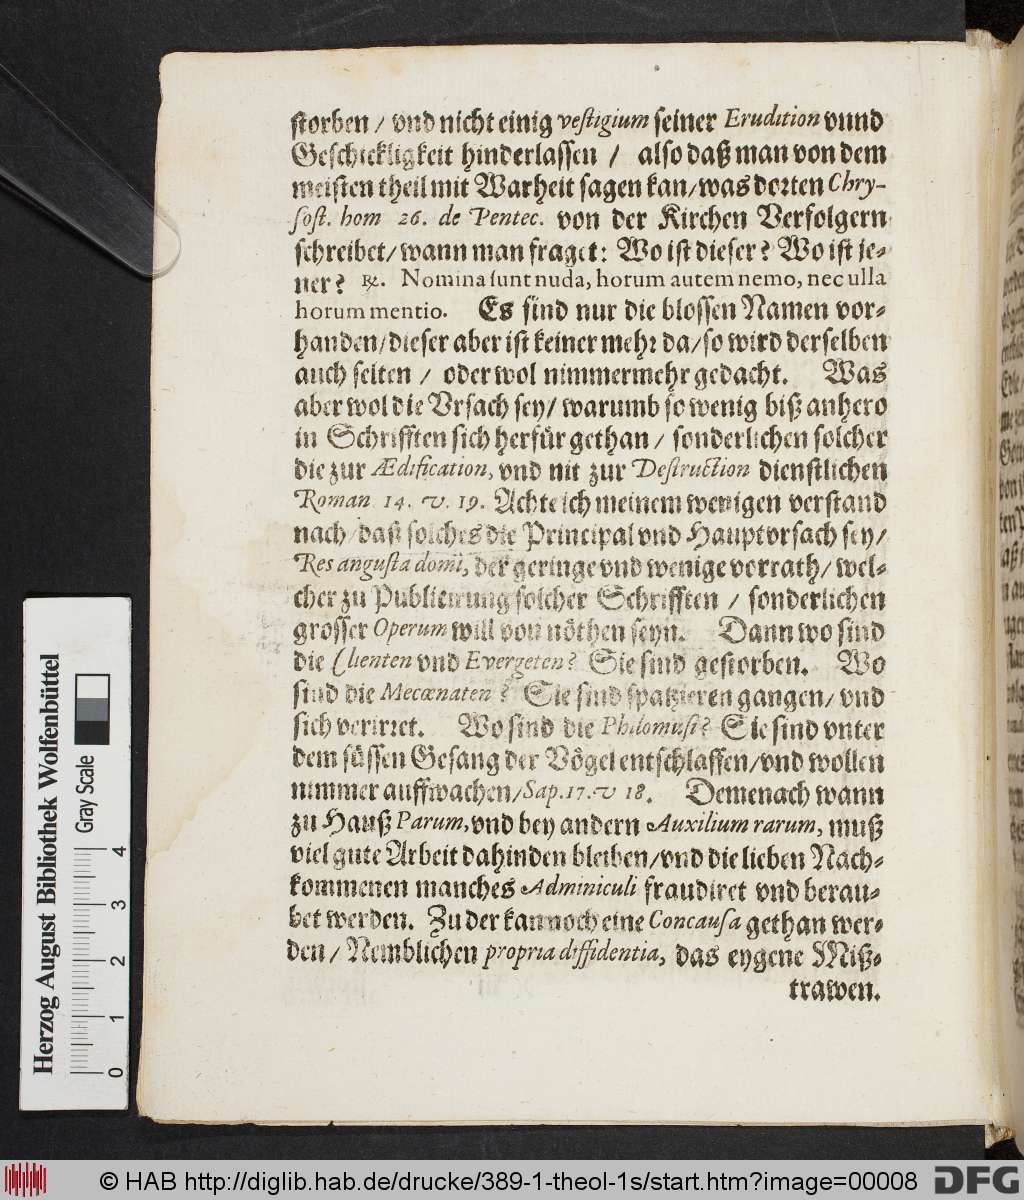 storben / vnd nicht einig vestigium seiner Erudition vnnd
Geschickligkeit hinderlassen / also daß man von dem
meisten theil mit Warheit sagen kan/was dorten Chry-
sost. hom 26. de Pentec. von der Kirchen Verfolgern
schreibet/wann man fraget: Wo ist dieser? Wo ist je-
ner? ℞. Nomina sunt nuda, horum autem nemo, nec ulla
horum mentio. Es sind nur die blossen Namen vor-
handen/dieser aber ist keiner mehr da/so wird derselben
auch selten / oder wol nimmermehr gedacht. Was
aber wol die Vrsach sey/ warumb so wenig biß anhero
in Schrifften sich herfür gethan / sonderlichen solcher
die zur Ædification, vnd nit zur Destruction dienstlichen
Roman 14. v. 19. Achte ich meinem wenigen verstand
nach/daß solches die Principal vnd Hauptvrsach sey/
Res angusta domi, der geringe vnd wenige vorrath/ wel-
cher zu Publicirung solcher Schrifften / sonderlichen
grosser Operum will von nöthen seyn. Dann wo sind
die Clienten vnd Evergeten? Sie sind gestorben. Wo
sind die Mecœnaten? Sie sind spatzieren gangen/ vnd
sich verirret. Wo sind die Philomusi? Sie sind vnter
dem süssen Gesang der Vögel entschlaffen/vnd wollen
nimmer auffwachen/Sap.17.v 18. Demenach wann
zu Hauß Parum, vnd bey andern Auxilium rarum, muß
viel gute Arbeit dahinden bleiben/vnd die lieben Nach-
kommenen manches Adminiculi fraudiret vnd berau-
bet werden. Zu der kan noch eine Concausa gethan wer-
den / Nemblichen propria diffidentia, das eygene Miß-
trawen.
Herzog August Bibliothek Wolfenbüttel
Gray Scale
0 1 2 3 4
© HAB http://diglib.hab.de/drucke/389-1-theol-1s/start.htm?image=00008
DFG